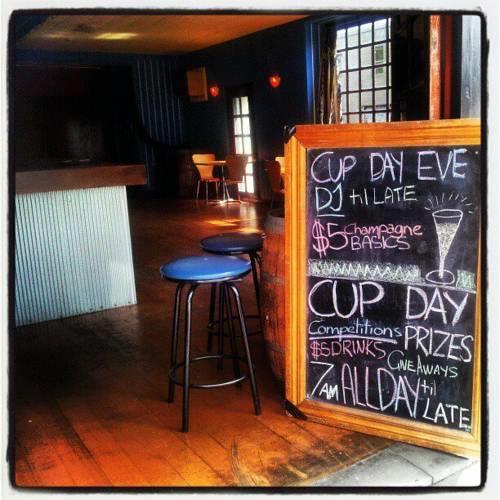 CUP DAY EVE
DJ til LATE
$5 Champagne
BASICS
CUP DAY
Competitions PRIZES
$5 DRINKS GIVEAWAYS
7AM ALL DAY til
LATE